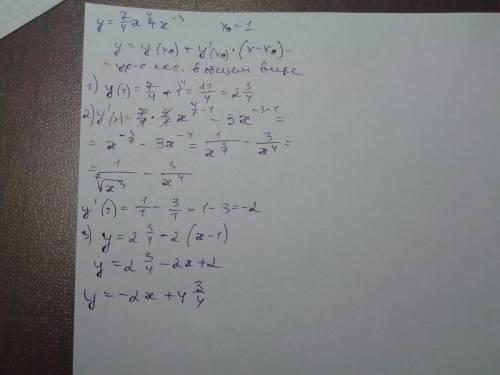 y = 7/4 x^4/7 x^-3    x₀ = 1
y = y(x₀) + y'(x₀)·(x-x₀) -
- ур-е кас. в общем виде
1) y(1) = 7/4 + 1 = 11/4 = 2 3/4
2) y'(x) = 7/4 · 4/7 x^(4/7 - 1) - 3x^(-3-1) =
= x^(-3/7) - 3x^-4 = 1/x^(3/7) - 3/x^4 =
= 1/⁷√x³ - 3/x^4
y'(1) = 1/1 - 3/1 = 1 - 3 = -2
3) y = 2 3/4 - 2 (x-1)
y = 2 3/4 - 2x + 2
y = -2x + 4 3/4